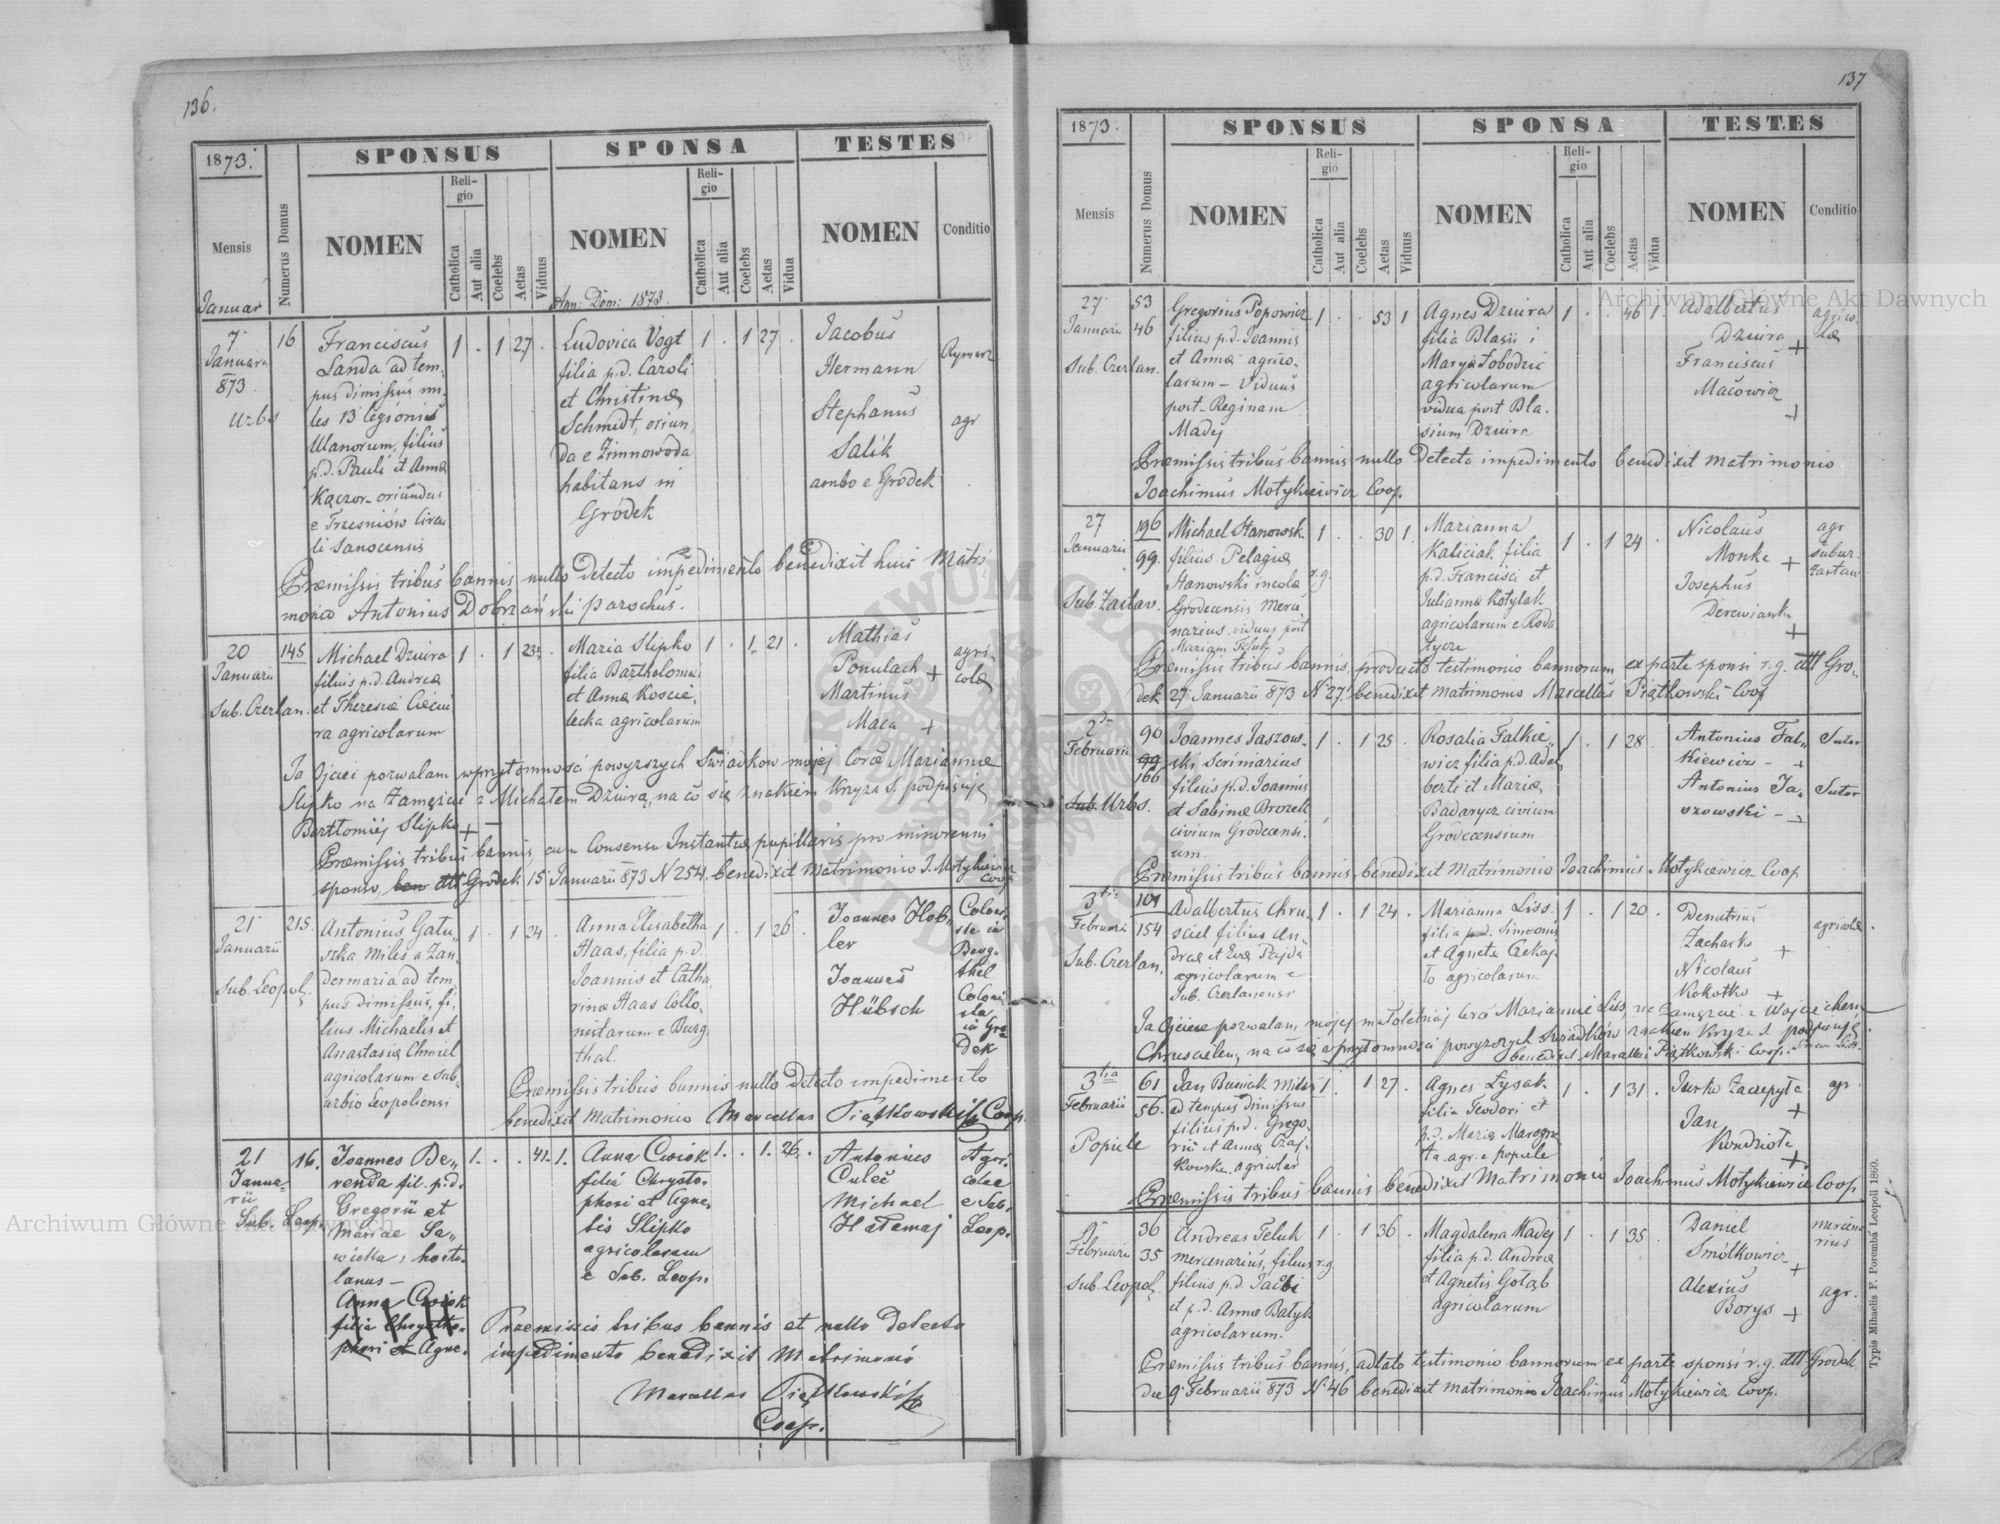 136.
1873.
SPONSUS
SPONSA
TESTES
Mensis
Numerus Domus
NOMEN
Religio
Catholica
Aut alia
Coelebs
Aetas
Viduus
NOMEN
Religio
Catholica
Aut alia
Coelebs
Aetas
Vidua
NOMEN
Conditio
Januar
Ann: Dom: 1873.
7
Januarii
873.
Urbs
16
Franciscus
Landa ad tem-
pus dimissus mi-
les 13 legionis
Ulanorum, filius
p.d. Pauli et Annæ
Kaczor oriundus
e Trzesniów Circu
li Sanocensis
1 . 1 27 .
Ludovica Vogt
filia p.d. Caroli
et Christinæ
Schmidt, oriun,
da e Zimnowoda
habitans in
Gródek
1 . 1 27 .
Jacobus
Hermann
Stephanus
Salik
ambo e Grodek
Rymarz
agr
Præmissis tribus bannis nullo detecto impedimento benedixit huic Matri
monio Antonius Dobrzański parochus.
20
Januarii
Sub. Czerlan.
145
Michael Dziura
filius p.d. Andreæ
et Theresiæ
ra agricolarum
1 . 1 23
Maria Slipko
filia Bartholomæi
et Annæ Koscie
lecka agricolarum
1 . 1 21 .
Mathias
Ponulach +
Martinus
Maca +
agri
colæ
Ja Ojciec pozwalam w przytomności powyższych Świadków mojej Córce Mariannie
Slipko na Zamęzcie z Michałem Dziurą, na co się znakiem Krzyza S. podpisuję
Bartłomiej Slipko +
Præmissis tribus bannis, cum Consensu Instantiæ pupillaris pro minorenni
sponso, ddt Grodek 15 Januarii 873 N 254. benedixit Matrimonio J. Motykiewicz
Coop
21
Januarii
Sub. Leopol.
215.
Antonius Gatu,,
szka Miles a Zan,
dermaria ad tem
pus dimissus, fi,
lius Michaelis et
Anastasiæ Chmiel
agricolarum e sub,
urbio Leopoliensi
1 . 1 24 .
Anna Elisabetha
Haas, filia p.d.
Joannis et Catha
rinæ Haas Collo
nistarum e Burg
thal.
1 . 1 26 .
Joannes Hob,
ler
Joannes
Hübsch
Coloni
sta in
Burg-
thal
Coloni
sta
in Gro
dek
Præmissis tribus bannis nullo detecto impedimento
benedixit Matrimonio Marcellus Piątkowski Coop.
21
Janua-
rii
Sub. Leop.
16.
Joannes De,,
renda fil. p.d.
Gregorii et
Mariae Sa,,
wicka, horto,
lanus —
Anna Cwiok
filia Chrysto,,
phori et Agne.
1. . . 41. 1.
Anna Cwiok
filia Chrysto,
phori et Agne,
tis Slipko
agricolarum
e Sub. Leop.
1. . 1. 26. .
Antonius
Culeć
Michael
Hałamaj
Agri,
colae
e Sub.
Leop.
Praemissis tribus bannis et nullo detecto
impedimento benedixit Matrimonio
Marcellus Piątkowski
Coop.
137
1873.
SPONSUS
SPONSA
TESTES
Mensis
Numerus Domus
NOMEN
Religio
Catholica
Aut alia
Coelebs
Aetas
Viduus
NOMEN
Religio
Catholica
Aut alia
Coelebs
Aetas
Vidua
NOMEN
Conditio
27
Januarii
Sub. Czerlan.
53
46
Gregorius Popowicz
filius p.d. Joannis
et Annæ agrico,
larum — Viduus
post Reginam
Madej
1 . . 53 1
Agnes Dziura
filia Blasii i
Marya Łobodzic
agricolarum
vidua post Bla,
sium Dziura
1 . . 46 1.
Adalbertus
Dziura +
Franciscus
Macowicz
+
agrico,
læ
Præmissis tribus bannis nullo detecto impedimento benedixit matrimonio
Joachimus Motykiewicz Coop.
27
Januarii
Sub. Zastav.
196
99.
Michael Stanowsk
filius Pelagiæ
Stanowski incolæ r.g.
Grodecensis Merce
narius, viduus post
Mariam Feluk
1 . . 30 1.
Marianna
Kaliciak filia
p.d. Francisci et
Juliannæ Kotylak
agricolarum e Roda
tycze
1 . 1 24 .
Nicolaus
Monke +
Josephus
Derewianka
+
agr
subur.
Zastaw
Præmissis tribus bannis, producto testimonio bannorum ex parte sponsi r.g. ddt Gro,
dek 27 Januarii 873 N 27. benedixit matrimonio Marcellus Piątkowski Coop
2da
Februarii
Sub. Urbs.
90
99
166
Joannes Jaszow,,
ski Scrimarius
filius p.d. Joannis
et Sabinæ Brozek
civium Grodecensi,
um.
1 . 1 25 .
Rosalia Falkie,,
wicz filia p.d. Adal
berti et Mariæ
Badarycz civium
Grodecensium
1 . 1 28 .
Antonius Fal,,
kiewicz — +
Antonius Ja,
Sutor
Sutor
Præmissis tribus bannis, benedixit Matrimonio Joachimus Motykiewicz Coop
3tia
Februarii
Sub. Czerlan.
101
154
Adalbertus Chru,
sciel filius An,
dreæ et Evæ Pajda
agricolarum e
Sub. Czerlanensi
1 . 1 24 .
Marianna Liss.
filia p.d. Simeonis
et Agnetæ Czekaj,
ło agricolarum
1 . 1 20 .
Demetrius
Zacharko +
Nicolaus
Kokotko +
agricolæ
Ja Ojciec pozwalam mojej małoletniej Córce Mariannie Liss, na Zamęzcie z Wojciechem
Chruscielem, na co się w przytomności powyższych Świadków znakiem Krzyza S. podpisuję
benedixit Marcellus Piątkowski Coop. Simeon Liss.
3tia
Februarii
Popiele
61
56.
Jan Busiak Miles
ad tempus dimissus
filius p.d. Grego
rii et Annæ Czaj
kowska agricolar
1 . 1 27 .
Agnes Łysak
filia Teodori et
p.d. Mariæ
ta. agr. e Popiele
1 . 1 31 .
Jurko Zaczepyta
+
Jan
Kondziola
+
agr
Præmissis tribus bannis benedixit Matrimonio Joachimus Motykiewicz Coop
9
Februarii
Sub. Leopol.
36
35
Andreas Feluk
mercenarius, filius r.g
filius p.d. Jacobi
et p.d. Annæ Batyk
agricolarum.
1 . 1 36 .
Magdalena Madej
filia p.d. Andreæ
et Agnetis Gołąb
agricolarum
1 . 1 35 .
Daniel
Smolkowicz
+
Alexius
Borys +
mercena
rius
agr.
Præmissis tribus bannis, adlato testimonio bannorum ex parte sponsi r.g. ddt Grodek
die 9 Februarii 873 N 46 benedixit matrimonio Joachimus Motykiewicz Coop.
Typis Mihaelis F. Porembá Leopoli 1860.
Archiwum Główne Akt Dawnych
Archiwum Główne Akt Dawnych
ARCHIWUM GŁÓWNE AKT DAWNYCH